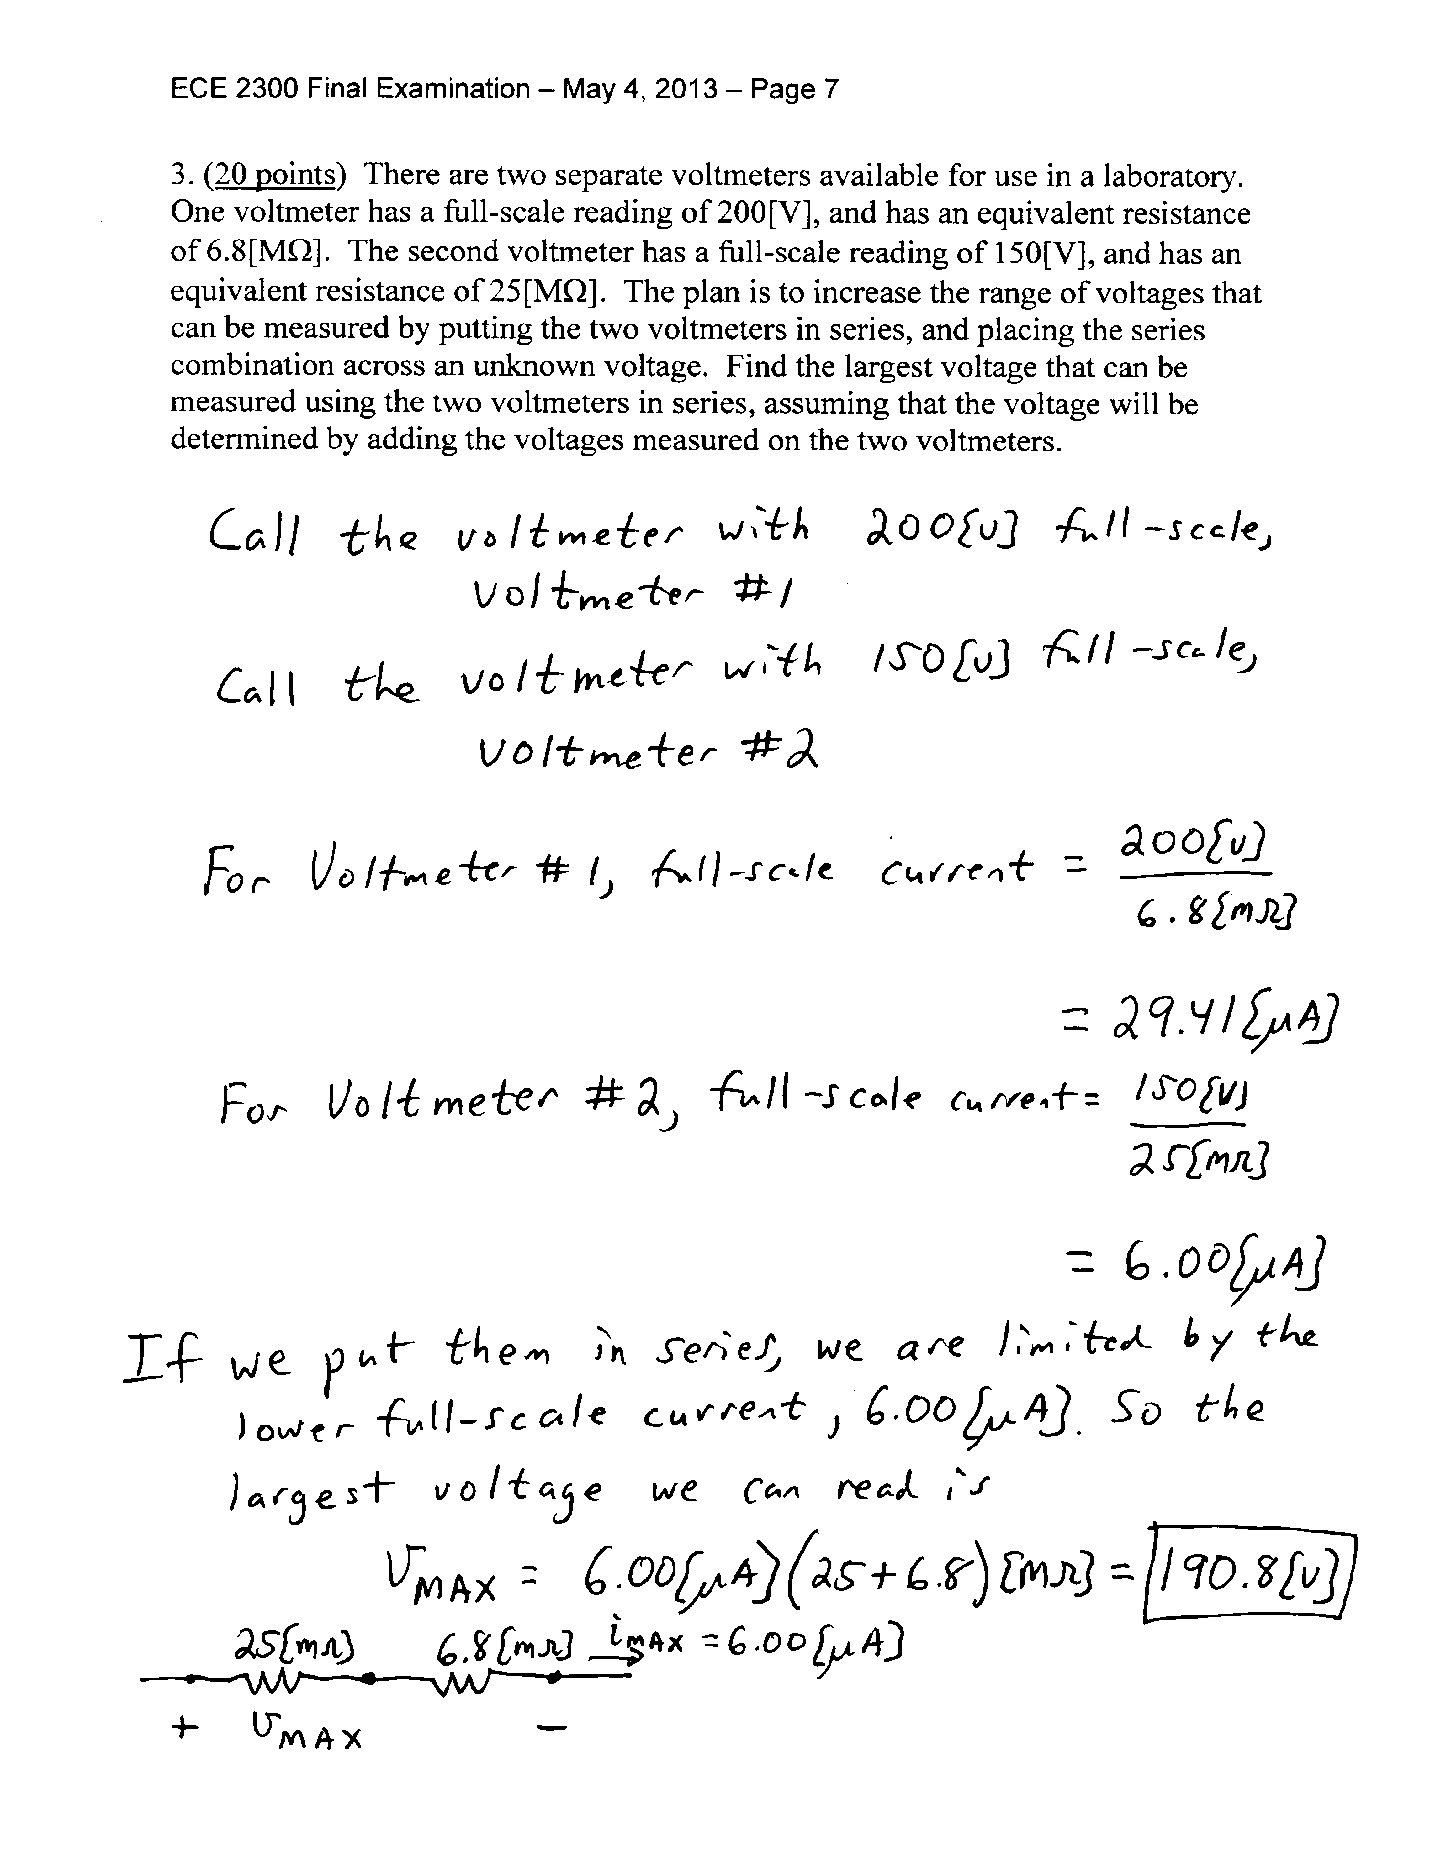 ECE 2300 Final Examination – May 4, 2013 – Page 7
3. (20 points) There are two separate voltmeters available for use in a laboratory.
One voltmeter has a full-scale reading of 200[V], and has an equivalent resistance
of 6.8[MΩ]. The second voltmeter has a full-scale reading of 150[V], and has an
equivalent resistance of 25[MΩ]. The plan is to increase the range of voltages that
can be measured by putting the two voltmeters in series, and placing the series
combination across an unknown voltage. Find the largest voltage that can be
measured using the two voltmeters in series, assuming that the voltage will be
determined by adding the voltages measured on the two voltmeters.
Call the voltmeter with 200[V] full-scale,
Voltmeter #1
Call the voltmeter with 150[V] full-scale,
Voltmeter #2
For Voltmeter #1, full-scale current = 200[V]
6.8[MΩ]
= 29.41[μA]
For Voltmeter #2, full-scale current = 150[V]
25[MΩ]
= 6.00[μA]
If we put them in series, we are limited by the
lower full-scale current, 6.00[μA]. So the
largest voltage we can read is
VMAX = 6.00[μA](25+6.8)[MΩ] = 190.8[V]
25[MΩ] 6.8[MΩ] iMAX = 6.00[μA]
+ VMAX −